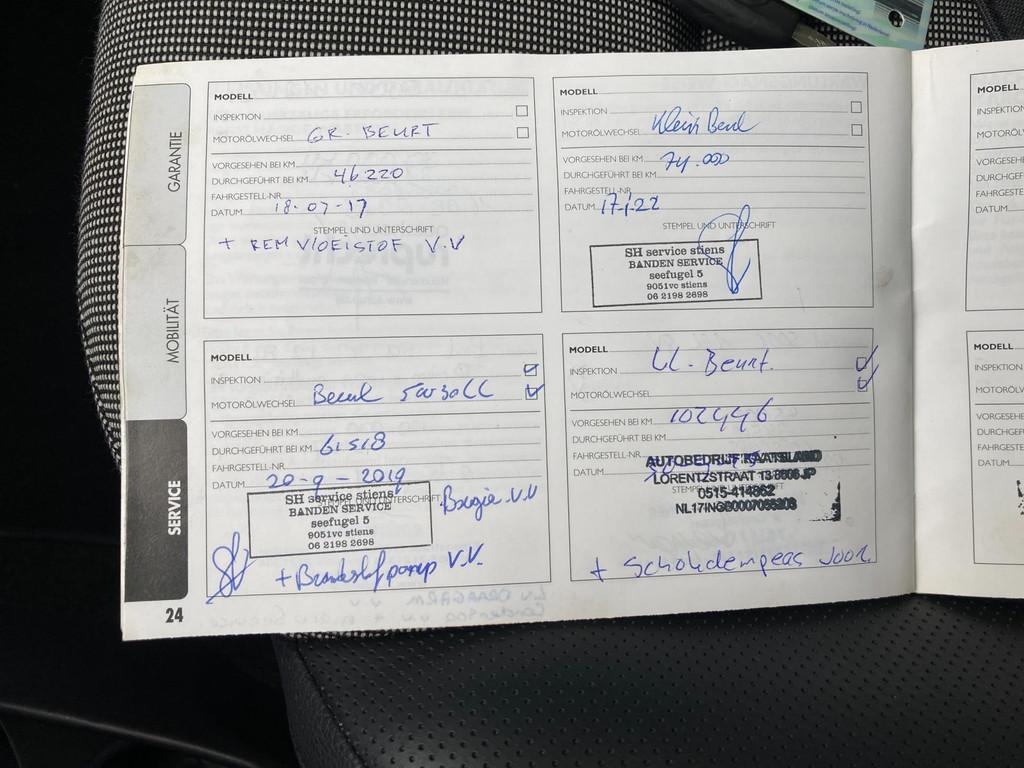 GARANTIE
MOBILITÄT
SERVICE
24
MODELL
INSPEKTION
MOTORÖLWECHSEL GR. BEURT
VORGESEHEN BEI KM
DURCHGEFÜHRT BEI KM 46220
FAHRGESTELL-NR.
DATUM 18-07-17
STEMPEL UND UNTERSCHRIFT
+ REM VLOEISTOF V.V
MODELL
INSPEKTION
MOTORÖLWECHSEL Klein Beurt
VORGESEHEN BEI KM
DURCHGEFÜHRT BEI KM 74.000
FAHRGESTELL-NR.
DATUM 17-1-22
STEMPEL UND UNTERSCHRIFT
SH service stiens
BANDEN SERVICE
seefugel 5
9051vc stiens
06 2198 2698
MODELL
INSPEKTION
MOTORÖLWECHSEL Beurt
VORGESEHEN BEI KM
DURCHGEFÜHRT BEI KM 61518
FAHRGESTELL-NR.
DATUM 20-9-2019
STEMPEL UND UNTERSCHRIFT
SH service stiens
BANDEN SERVICE
seefugel 5
9051vc stiens
06 2198 2698
Bougie V.V
+ Brandstofpomp V.V.
MODELL
INSPEKTION Kl. Beurt.
MOTORÖLWECHSEL
VORGESEHEN BEI KM 102446
DURCHGEFÜHRT BEI KM
FAHRGESTELL-NR.
DATUM
STEMPEL UND
AUTOBEDRIJF RAATSLAND
LORENTZSTRAAT 13 8606 JP
0515-414862
+ Schokdempers voor.
MODELL
INSPEKTION
MOTORÖLW
VORGESEHE
DURCHGEF
FAHRGESTE
DATUM
MODELL
INSPEKTION
MOTORÖL
VORGESEHE
DURCHGEF
FAHRGEST
DATUM